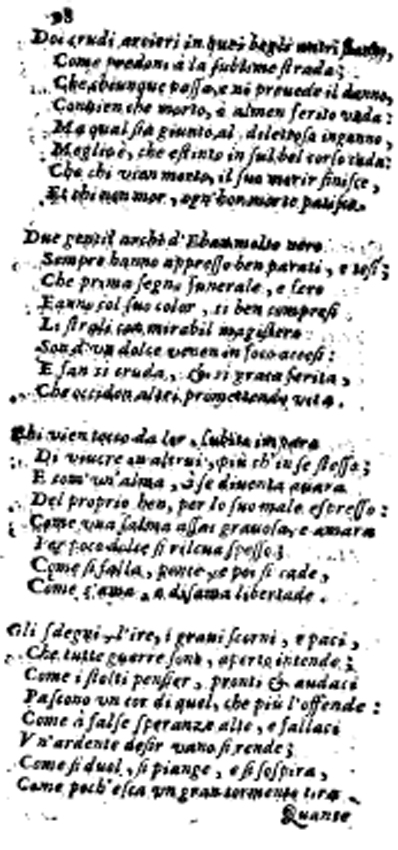 98
Doi crudi arcieri in quei begli antri stanno,
Come predoni à la sublime strada;
Che chiunque passa, e nō prevede il danno,
Convien che morto, ò almen ferito vada:
Ma qual sia giunto al dilettoso inganno,
Meglio è, che estinto in sul bel corso cada:
Che chi vien morto, il suo morir finisce,
Et chi non mor, ogn'hor morte patisce.
Due gentil archi d'Eban molto nero
Sempre hanno appresso ben parati, e tesi;
Che prima segno funerale, e fero
Fanno col suo color, si ben compresi
Li strali con mirabil magistero
Son d'un dolce venen in foco accesi:
E fan si cruda, & si grata ferita,
Che occidon altri promettendo vita.
Chi vien tocco da lor, subito impara
Di vivere in altrui, più ch'in se stesso;
E com' un'alma, à se diventa avara
Del proprio ben, per lo suo male espresso:
Come una salma assai gravosa, e amara
Per poco dolce si rileva spesso;
Come si falla, pente, e poi si cade,
Come s'ama, e disama libertade.
Gli sdegni, l'ire, i gravi scorni, e paci,
Che tutte guerre sono, aperto intende;
Come i stolti pensier, pronti & audaci
Pascono un cor di quel, che più l'offende:
Come à false speranze alte, e fallaci
Un'ardente desir vano si rende;
Come si duol, si piange, e si sospira,
Come poch'esca un gran tormento tira.
Quante